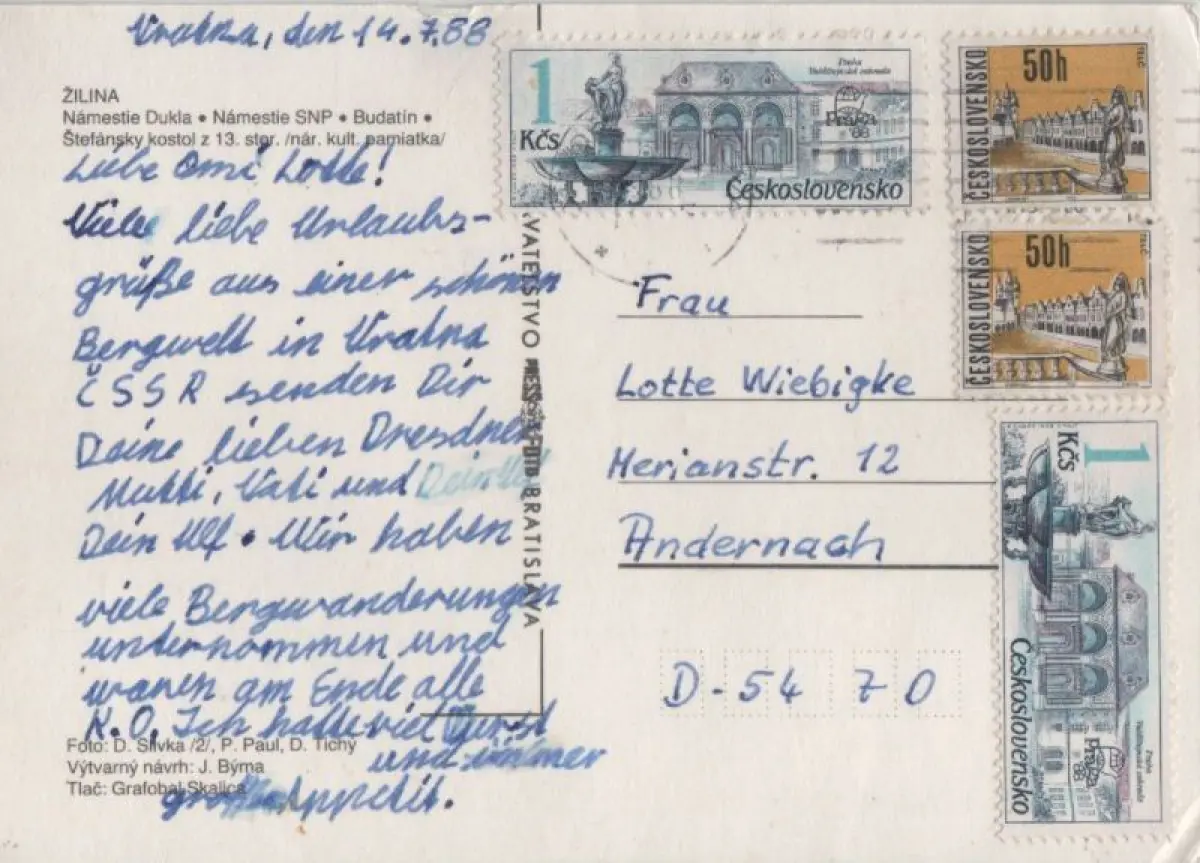 Vratna, den 14.7.88
ŽILINA
Námestie Dukla • Námestie SNP • Budatín •
Štefánsky kostol z 13. stor. /nár. kult. pamiatka/
Liebe Omi Lotte!
Viele liebe Urlaubs-
grüße aus einer schönen
Bergwelt in Vratna
ČSSR senden Dir
Deine lieben Dresdner
Mutti, Vati und
Dein Ulf. Wir haben
viele Bergwanderungen
unternommen und
waren am Ende alle
K.O. Ich hatte viel Durst
und immer
großen Appetit.
Foto: D. Slivka /2/, P. Paul, D. Tichý
Výtvarný návrh: J. Býrna
Tlač: Grafobal Skalica
BRATISLAVA
1
Kčs
Praha
Valdštejnská zahrada
Praga
'88
Československo
50h
ČESKOSLOVENSKO
TELČ
50h
ČESKOSLOVENSKO
TELČ
Frau
Lotte Wiebigke
Merianstr. 12
Andernach
D-5470
1
Kčs
Praha
Valdštejnská zahrada
Praga
'88
Československo